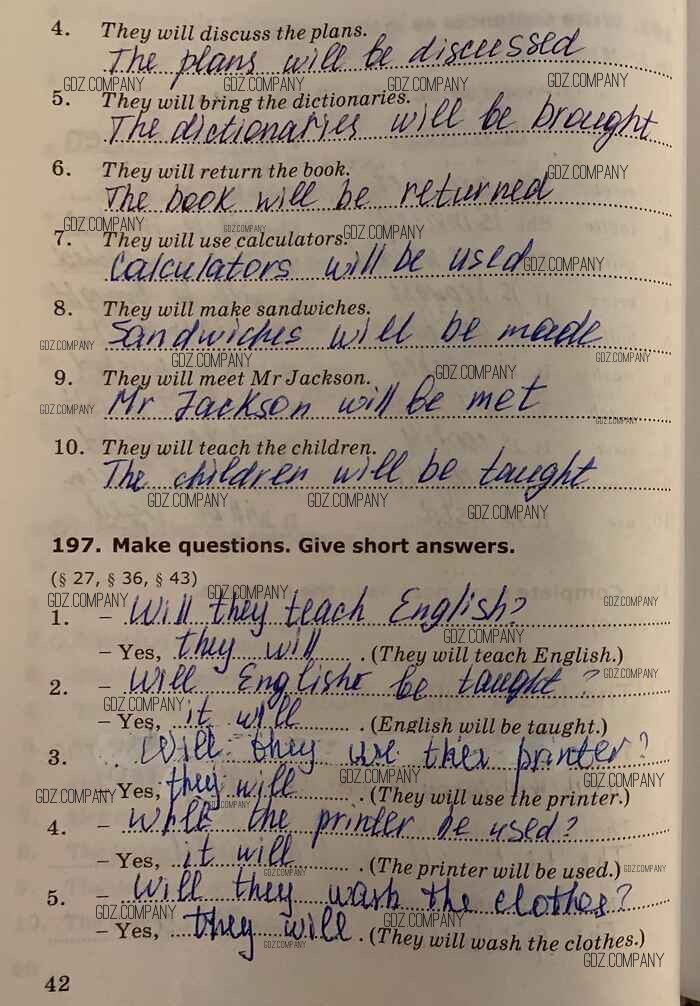 4. They will discuss the plans.
The plans will be discussed
GDZ.COMPANY GDZ.COMPANY GDZ.COMPANY GDZ.COMPANY
5. They will bring the dictionaries.
The dictionaries will be brought
6. They will return the book.
GDZ.COMPANY
The book will be returned
GDZ.COMPANY GDZ.COMPANY GDZ.COMPANY
7. They will use calculators.
Calculators will be used
GDZ.COMPANY
8. They will make sandwiches.
Sandwiches will be made
GDZ.COMPANY GDZ.COMPANY GDZ.COMPANY
9. They will meet Mr Jackson.
GDZ.COMPANY
Mr Jackson will be met
GDZ.COMPANY GDZ.COMPANY
10. They will teach the children.
The children will be taught
GDZ.COMPANY GDZ.COMPANY GDZ.COMPANY
197. Make questions. Give short answers.
(§ 27, § 36, § 43)
GDZ.COMPANY GDZ.COMPANY GDZ.COMPANY
1. – Will they teach English?
GDZ.COMPANY
– Yes, they will . (They will teach English.)
2. – Will English be taught?
GDZ.COMPANY GDZ.COMPANY
– Yes, it will . (English will be taught.)
3. Will they use the printer?
GDZ.COMPANY GDZ.COMPANY GDZ.COMPANY
– Yes, they will . (They will use the printer.)
GDZ.COMPANY
4. – Will the printer be used?
– Yes, it will . (The printer will be used.)
GDZ.COMPANY GDZ.COMPANY
5. – Will they wash the clothes?
GDZ.COMPANY GDZ.COMPANY
– Yes, they will . (They will wash the clothes.)
GDZ.COMPANY GDZ.COMPANY
42